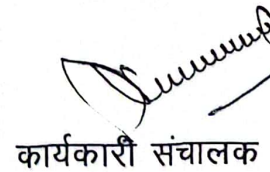 कार्यकारी संचालक